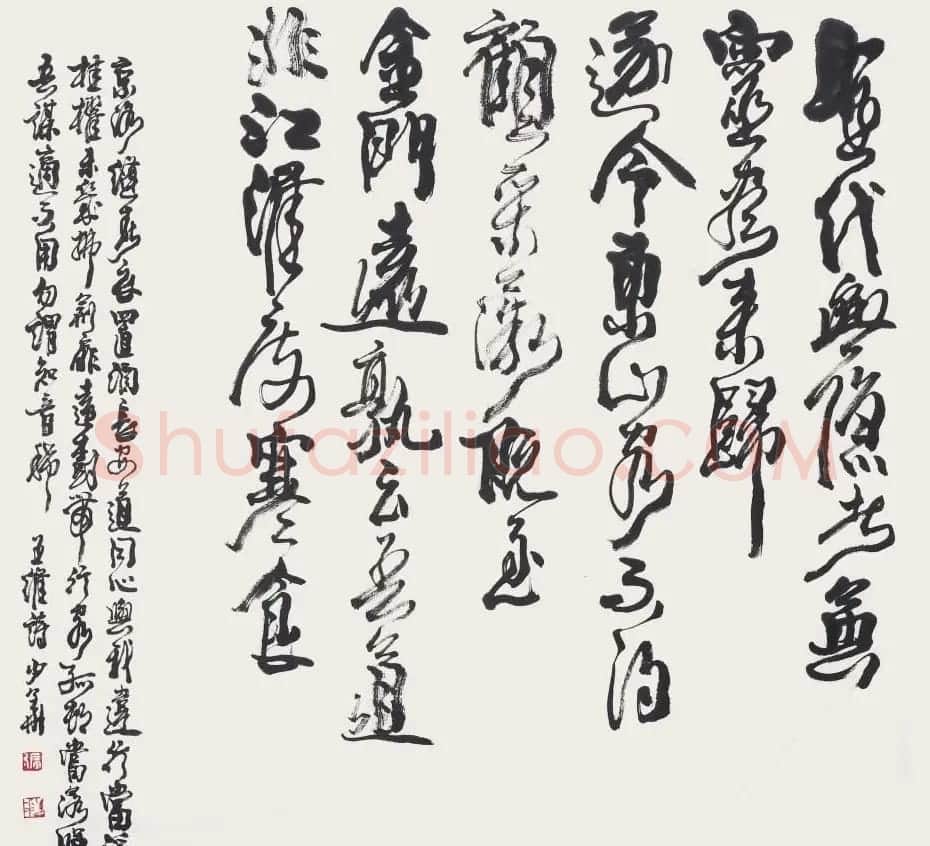 聖代無隱者英
靈盡來歸
遂令東山客不得
顧采薇既至
金門遠孰云吾道
非江淮度寒食
京洛縫春衣置酒長安道同心與我違行當浮
桂櫂未幾拂荊扉遠樹帶行客孤城當落暉
吾謀適不用勿謂知音稀 王維詩 少華
Shufaziliao.COM